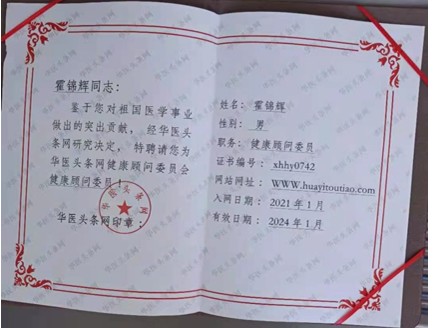 霍锦辉同志:
鉴于您对祖国医学事业
做出的突出贡献，经华医头
条网研究决定，特聘请您为
华医头条网健康顾问委员会
健康顾问委员！
华医头条网印章：
华医头条网
姓名：霍锦辉
性别：男
职务：健康顾问委员
证书编号：xhhy0742
网站网址：WWW.huayitoutiao.com
入网日期：2021年1月
有效日期：2024年1月